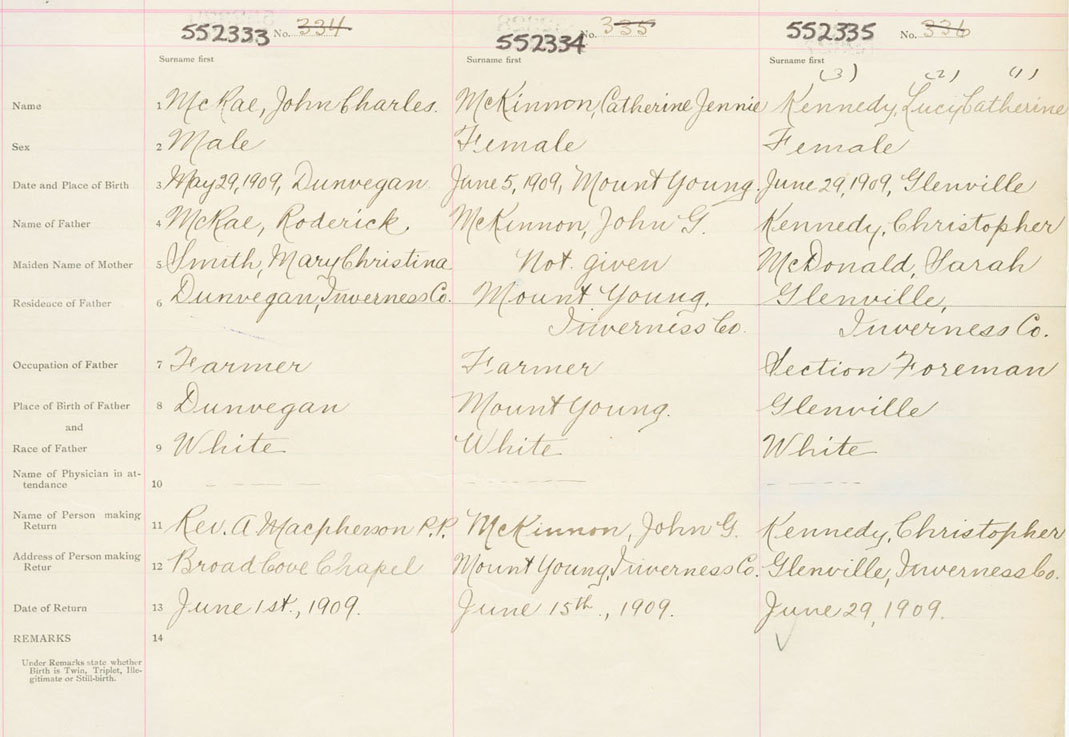 552333 No. 334 552334 No. 335 552335 No. 336
Surname first Surname first Surname first
(3) (2) (1)
Name 1 McRae, John Charles. McKinnon, Catherine Jennie Kennedy, Lucy Catherine
Sex 2 Male Female Female
Date and Place of Birth 3 May 29, 1909, Dunvegan June 5, 1909, Mount Young. June 29, 1909, Glenville
Name of Father 4 McRae, Roderick, McKinnon, John G. Kennedy, Christopher
Maiden Name of Mother 5 Smith, Mary Christina Not given McDonald, Sarah
Residence of Father 6 Dunvegan, Inverness Co. Mount Young, Glenville,
Inverness Co. Inverness Co.
Occupation of Father 7 Farmer Farmer Section Foreman
Place of Birth of Father 8 Dunvegan Mount Young. Glenville
and
Race of Father 9 White White White
Name of Physician in at-
tendance 10
Name of Person making
Return 11 Rev. A Macpherson P.P. McKinnon, John G. Kennedy, Christopher
Address of Person making
Retur 12 Broad Cove Chapel Mount Young, Inverness Co. Glenville, Inverness Co.
Date of Return 13 June 1st., 1909. June 15th., 1909. June 29, 1909.
REMARKS 14
Under Remarks state whether
Birth is Twin, Triplet, Ille-
gitimate or Still-birth.